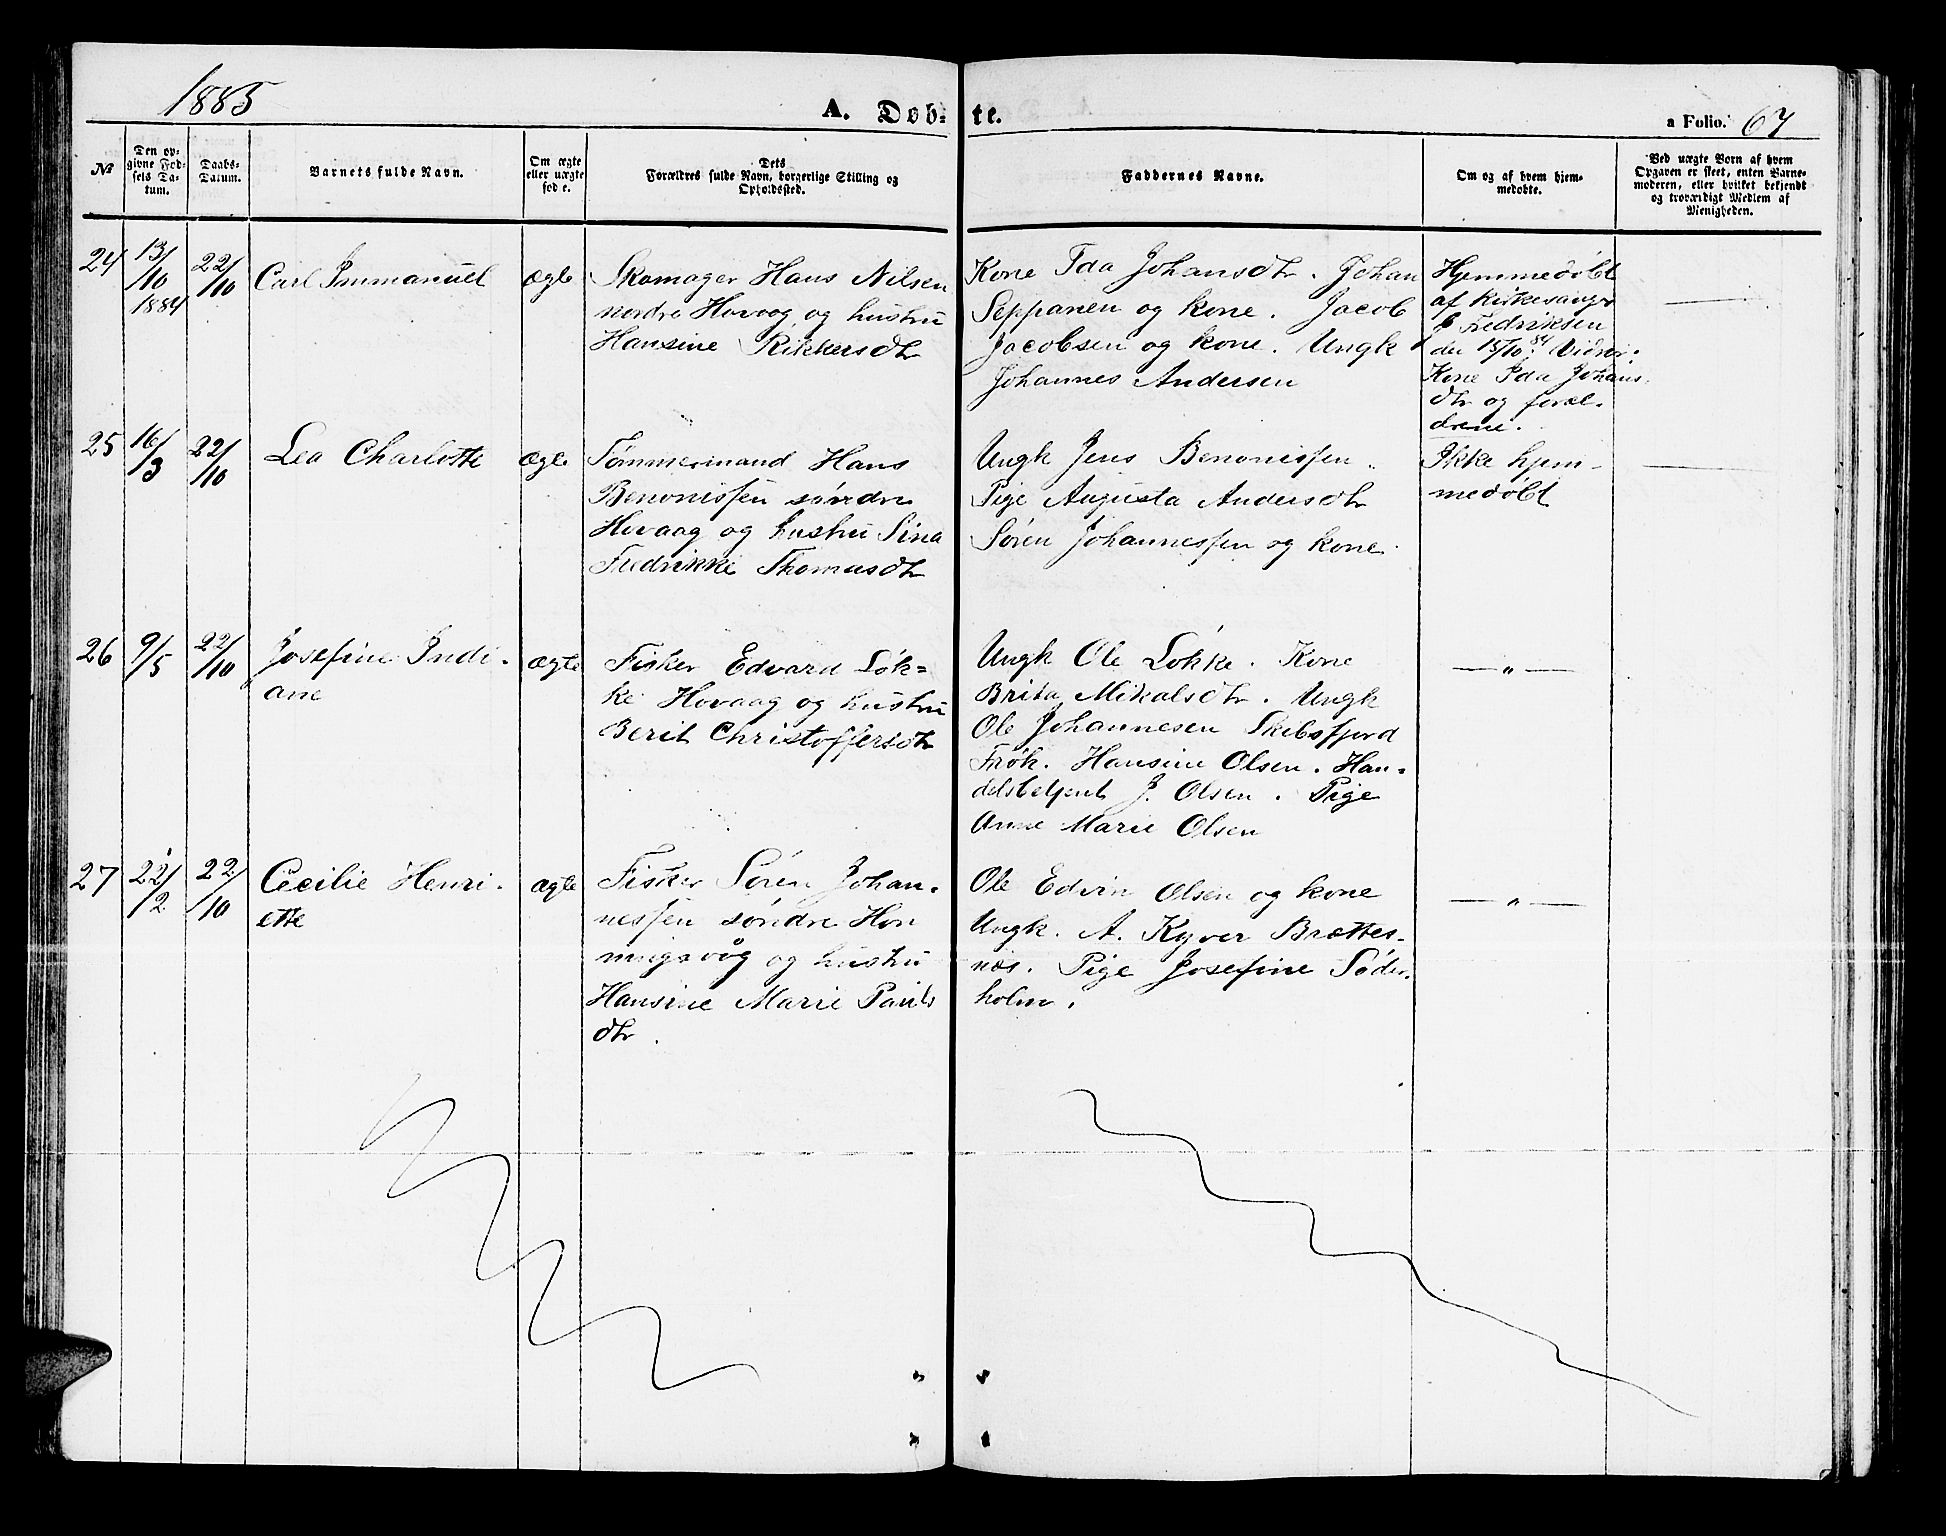 1885
A. Døb-te.
a Folio. 67
№
Den op-
givne Fød-
sels Da-
tum.
Daabs-
Datum.
Barnets fulde Navn.
Om ægte
eller uægte
fød e.
Dets
Forældres fulde Navn, borgerlige Stilling og
Opholdssted.
Faddernes Navne.
Om og af hvem hjem-
medøbte.
Ved uægte Børn af hvem
Opgaven er skeet, enten Barne-
moderen, eller hvilket bekjendt
og troværdigt Medlem af
Menigheden.
24
13/10
1884
22/10
Carl Immanuel
ægte
Skomager Hans Nilsen
nordre Hovaag og hustru
Hansine Rikkersdtr
Kone Ida Johansdtr. Johan
Seppanen og kone. Jacob
Jacobsen og kone. Ungk
Johannes Andersen
Hjemmedøbt
af Kirkesanger
Fredriksen
den 15/10 84 Vidner:
Kone Ida Johans-
dtr og foræl-
drene.
25
16/3
22/10
Lea Charlotte
ægte
Tømmermand Hans
Benonissen søndre
Hovaag og hustru Sina
Fredrikke Thomasdtr
Ungk Jens Benonissen.
Pige Augusta Andersdtr
Søren Johannessen og kone.
Ikke hjem-
medøbt
26
9/5
22/10
Josefine Indi-
ane
ægte
Fisker Edvard Løk-
ke Hovaag og hustru
Berit Christoffersdtr
Ungk Ole Løkke. Kone
Brita Mikalsdtr. Ungk
Ole Johannesen Skibsfjord
Frøk. Hansine Olsen. Han-
delsbetjent J. Olsen. Pige
Anne Marie Olsen
— „ —
27
22/2
22/10
Cecilie Henri-
ette
ægte
Fisker Søren Johan-
nessen søndre Hon
ningsvåg og hustru
Hansine Marie Pauls
dtr.
Ole Edvin Olsen og kone
Ungk. A. Kyver Brettes-
næs. Pige Josefine Søder-
holm.
— „ —